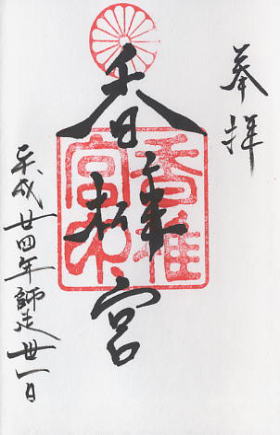 奉拝
香椎宮
香椎
宮印
平成廿四年師走卅一日